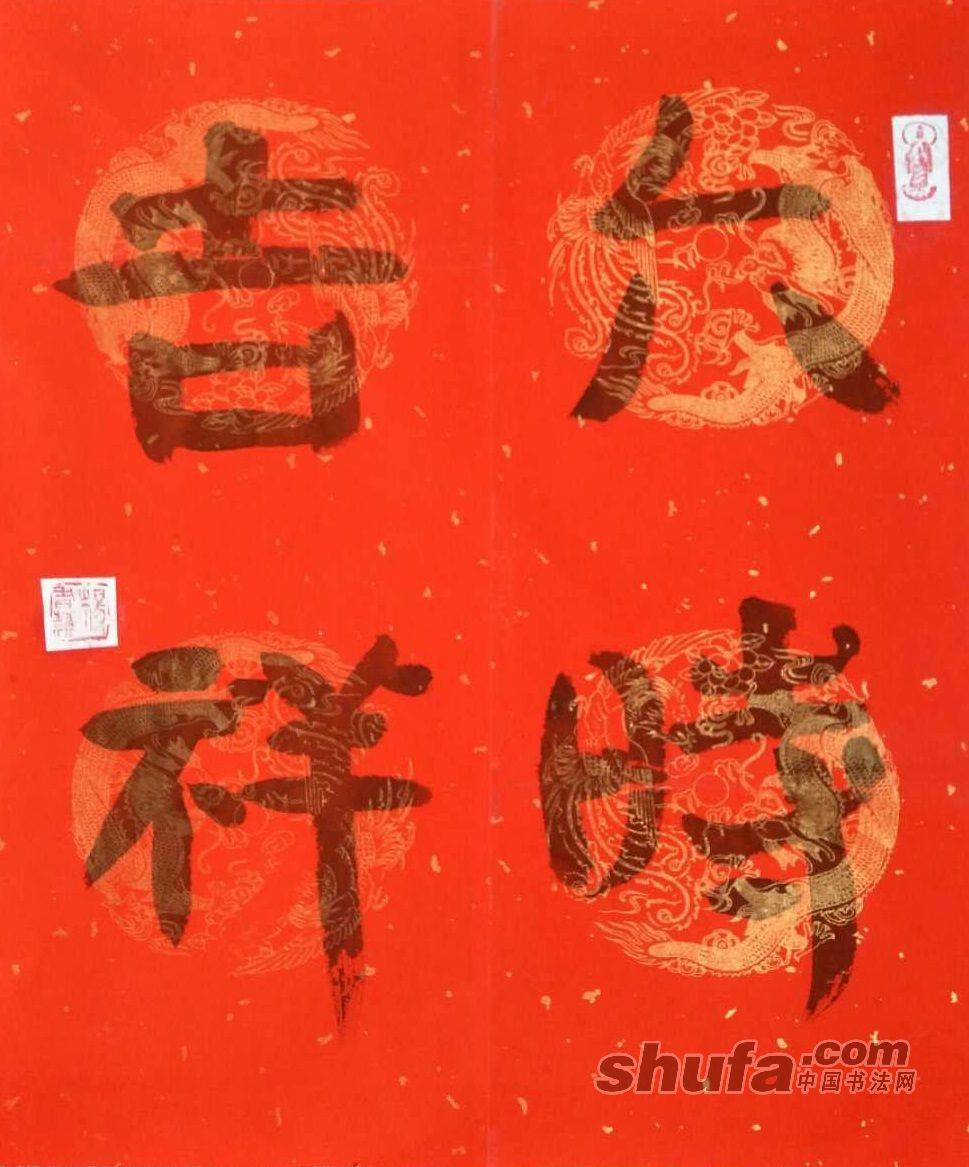 六時
吉祥
shufa.com
中国书法网